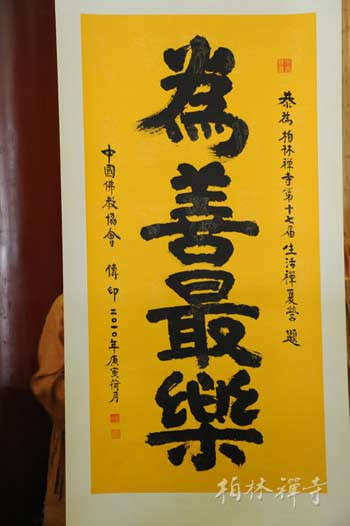 恭為柏林禪寺第十七届生活禪夏營題
為善最樂
中國佛教協會 傳印 二〇一〇年庚寅荷月
柏林禪寺